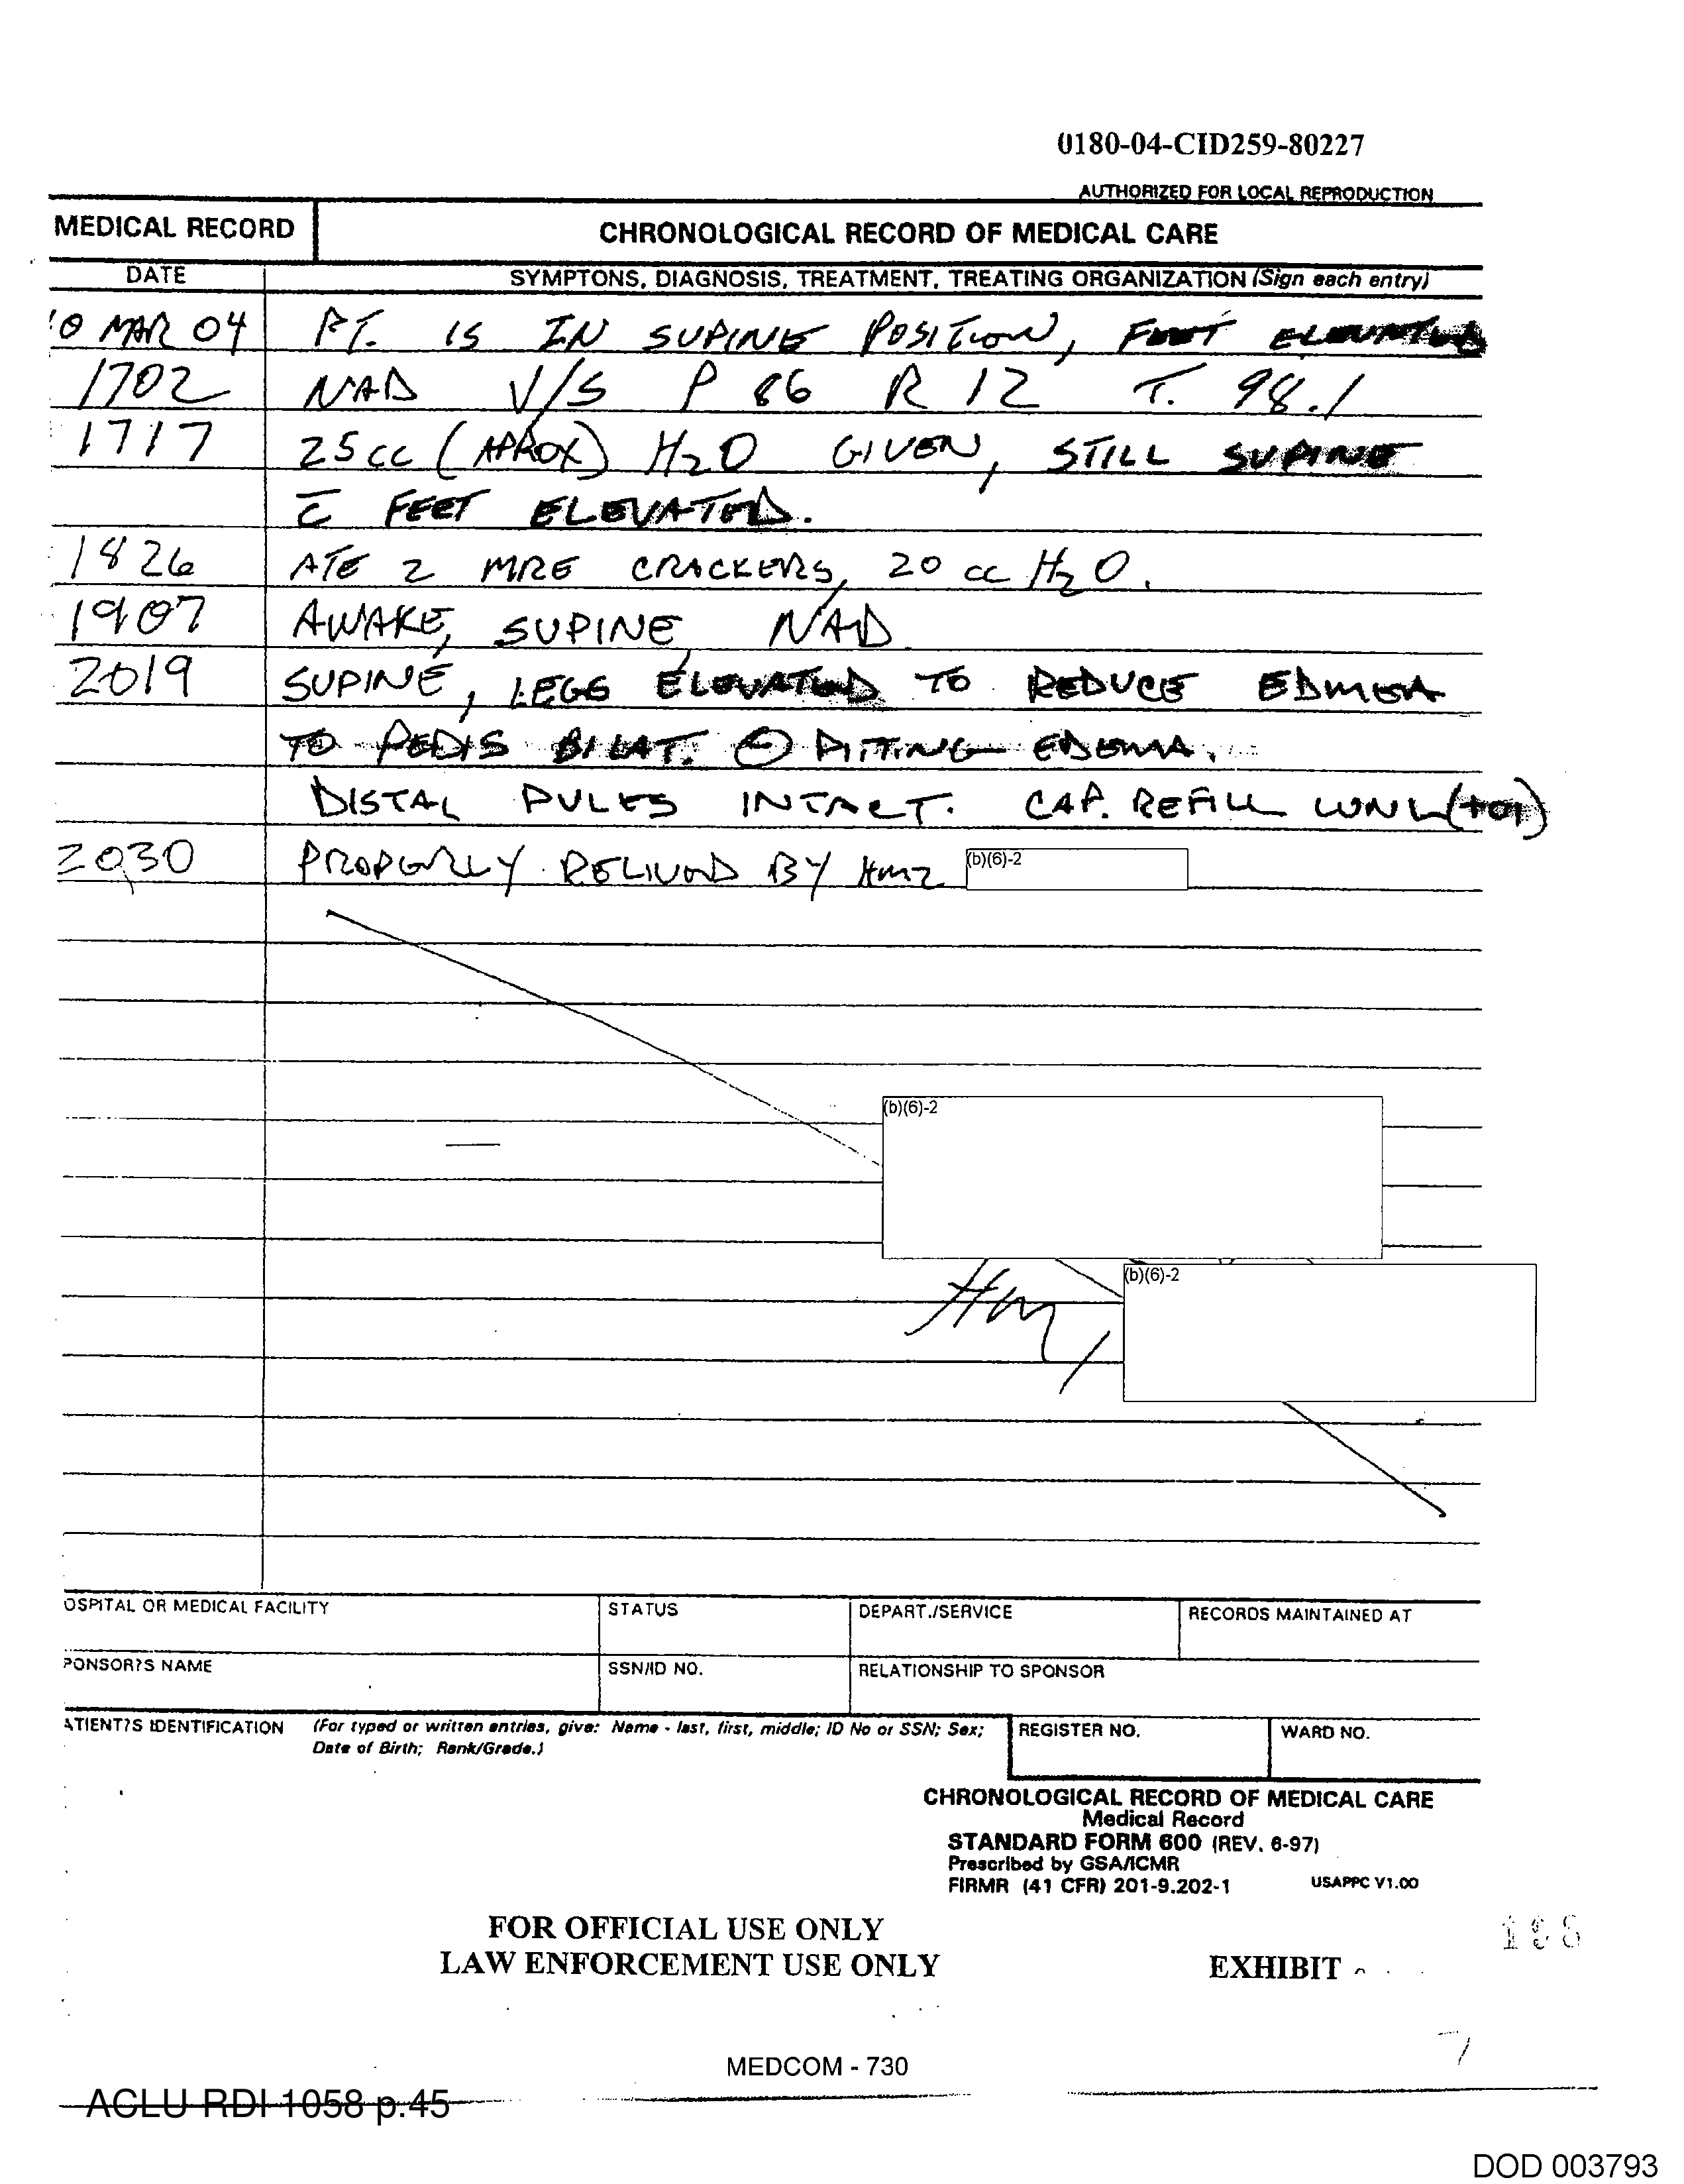 0180-04-CID259-80227
AUTHORIZED FOR LOCAL REPRODUCTION
MEDICAL RECORD CHRONOLOGICAL RECORD OF MEDICAL CARE
DATE SYMPTONS, DIAGNOSIS, TREATMENT, TREATING ORGANIZATION (Sign each entry)
10 MAR 04 PT. IS IN SUPINE POSITION, FEET ELEVATED
1702 NAD V/S P 86 R 12 T. 98.1
1717 25cc (APROX) H2O GIVEN, STILL SUPINE
c̄ FEET ELEVATED.
1826 ATE 2 MRE CRACKERS, 20 cc H2O.
1907 AWAKE, SUPINE, NAD
2019 SUPINE, LEGS ELEVATED TO REDUCE EDMEA
TO PEDIS BILAT. ⊖ PITTING EDEMA.
DISTAL PULES INTACT. CAP. REFILL WNL
2030 PROPERLY RELIVED BY HM2 (b)(6)-2
(b)(6)-2
HM, (b)(6)-2
OSPITAL OR MEDICAL FACILITY STATUS DEPART./SERVICE RECORDS MAINTAINED AT
PONSOR?S NAME SSN/ID NO. RELATIONSHIP TO SPONSOR
ATIENT?S IDENTIFICATION (For typed or written entries, give: Name - last, first, middle; ID No or SSN; Sex; REGISTER NO. WARD NO.
Date of Birth; Rank/Grade.)
CHRONOLOGICAL RECORD OF MEDICAL CARE
Medical Record
STANDARD FORM 600 (REV. 6-97)
Prescribed by GSA/ICMR
FIRMR (41 CFR) 201-9.202-1 USAPPC V1.00
FOR OFFICIAL USE ONLY
LAW ENFORCEMENT USE ONLY EXHIBIT
MEDCOM - 730
ACLU RDI 1058 p.45
DOD 003793